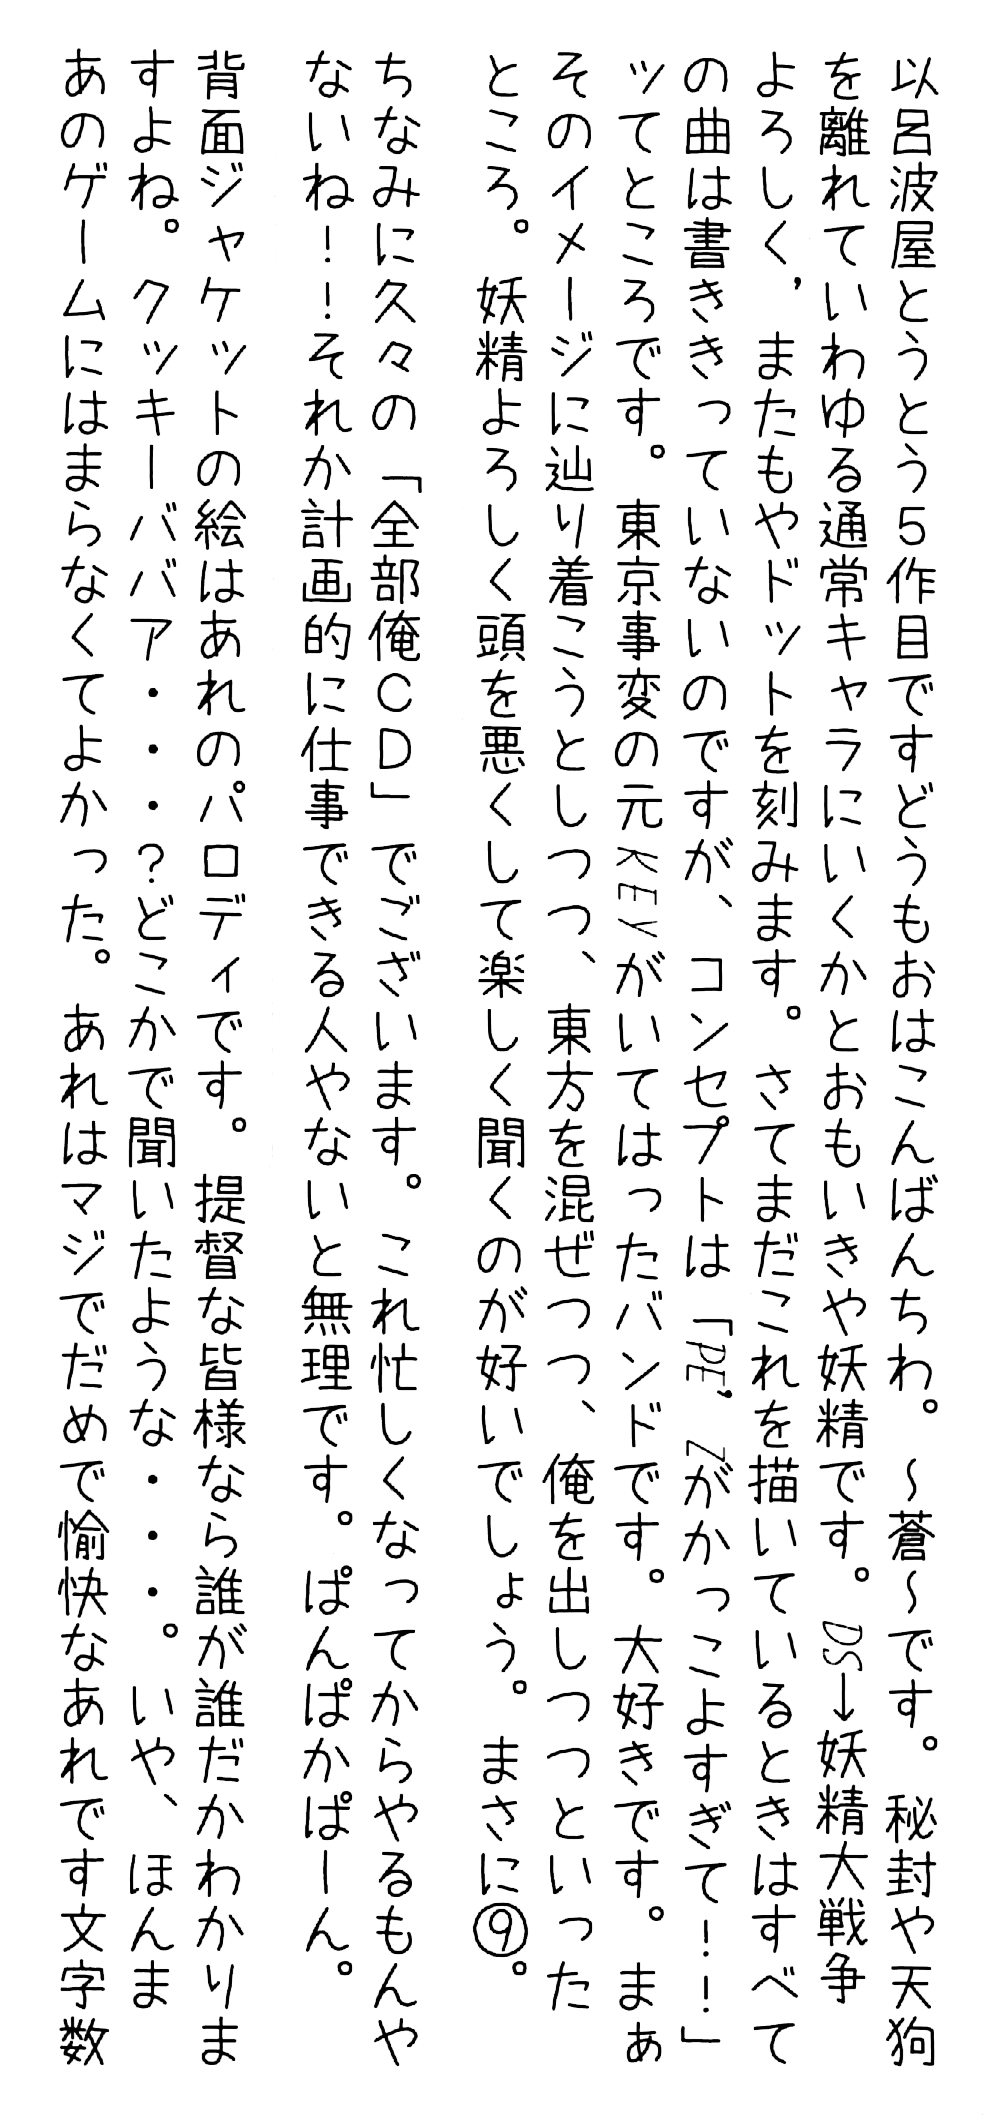 以呂波屋とうとう５作目ですどうもおはこんばんちわ。～蒼～です。秘封や天狗
を離れていわゆる通常キャラにいくかとおもいきや妖精です。DS→妖精大戦争
よろしく，またもやドットを刻みます。さてまだこれを描いているときはすべて
の曲は書ききっていないのですが、コンセプトは「PE'Zがかっこよすぎて！！」
ッてところです。東京事変の元KEYがいてはったバンドです。大好きです。まぁ
そのイメージに辿り着こうとしつつ、東方を混ぜつつ、俺を出しつつといった
ところ。妖精よろしく頭を悪くして楽しく聞くのが好いでしょう。まさに⑨。
ちなみに久々の「全部俺ＣＤ」でございます。これ忙しくなってからやるもんや
ないね！！それか計画的に仕事できる人やないと無理です。ぱんぱかぱーん。
背面ジャケットの絵はあれのパロディです。提督な皆様なら誰が誰だかわかりま
すよね。クッキーババア・・・？どこかで聞いたような・・・。いや、ほんま
あのゲームにはまらなくてよかった。あれはマジでだめで愉快なあれです文字数